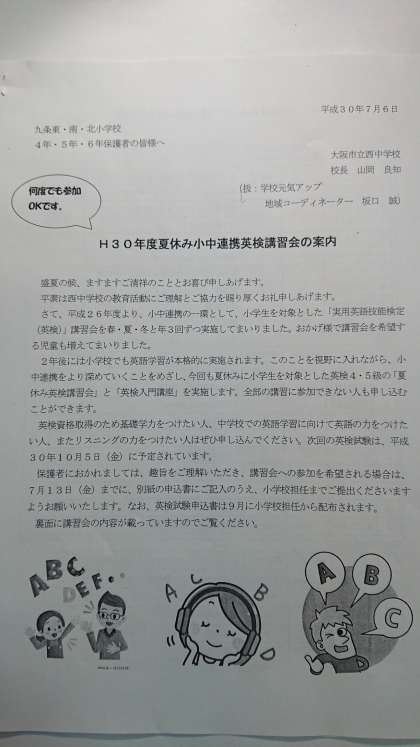 平成30年7月6日
九条東・南・北小学校
4年・5年・6年保護者の皆様へ
大阪市立西中学校
校長 山岡 良知
(扱：学校元気アップ
地域コーディネーター 坂口 誠)
何度でも参加
OKです。
H30年度夏休み小中連携英検講習会の案内
盛夏の候、ますますご清祥のこととお喜び申しあげます。
平素は西中学校の教育活動にご理解とご協力を賜り厚くお礼申しあげます。
さて、平成26年度より、小中連携の一環として、小学生を対象とした「実用英語技能検定
(英検)」講習会を春・夏・冬と年3回ずつ実施してまいりました。おかげ様で講習会を希望す
る児童も増えてまいりました。
2年後には小学校でも英語学習が本格的に実施されます。このことを視野に入れながら、小
中連携をより深めていくことをめざし、今回も夏休みに小学生を対象とした英検4・5級の「夏
休み英検講習会」と「英検入門講座」を実施します。全部の講習に参加できない人も申し込む
ことができます。
英検資格取得のため基礎学力をつけたい人、中学校での英語学習に向けて英語の力をつけた
い人、またリスニングの力をつけたい人はぜひ申し込んでください。次回の英検試験は、平成
30年10月5日（金）に予定されています。
保護者におかれましては、趣旨をご理解いただき、講習会への参加を希望される場合は、
7月13日（金）までに、別紙の申込書にご記入のうえ、小学校担任までご提出くださいます
ようお願いいたします。なお、英検試験申込書は9月に小学校担任から配布されます。
裏面に講習会の内容が載っていますのでご覧ください。
ABC
DEF..
A C B D
A B C